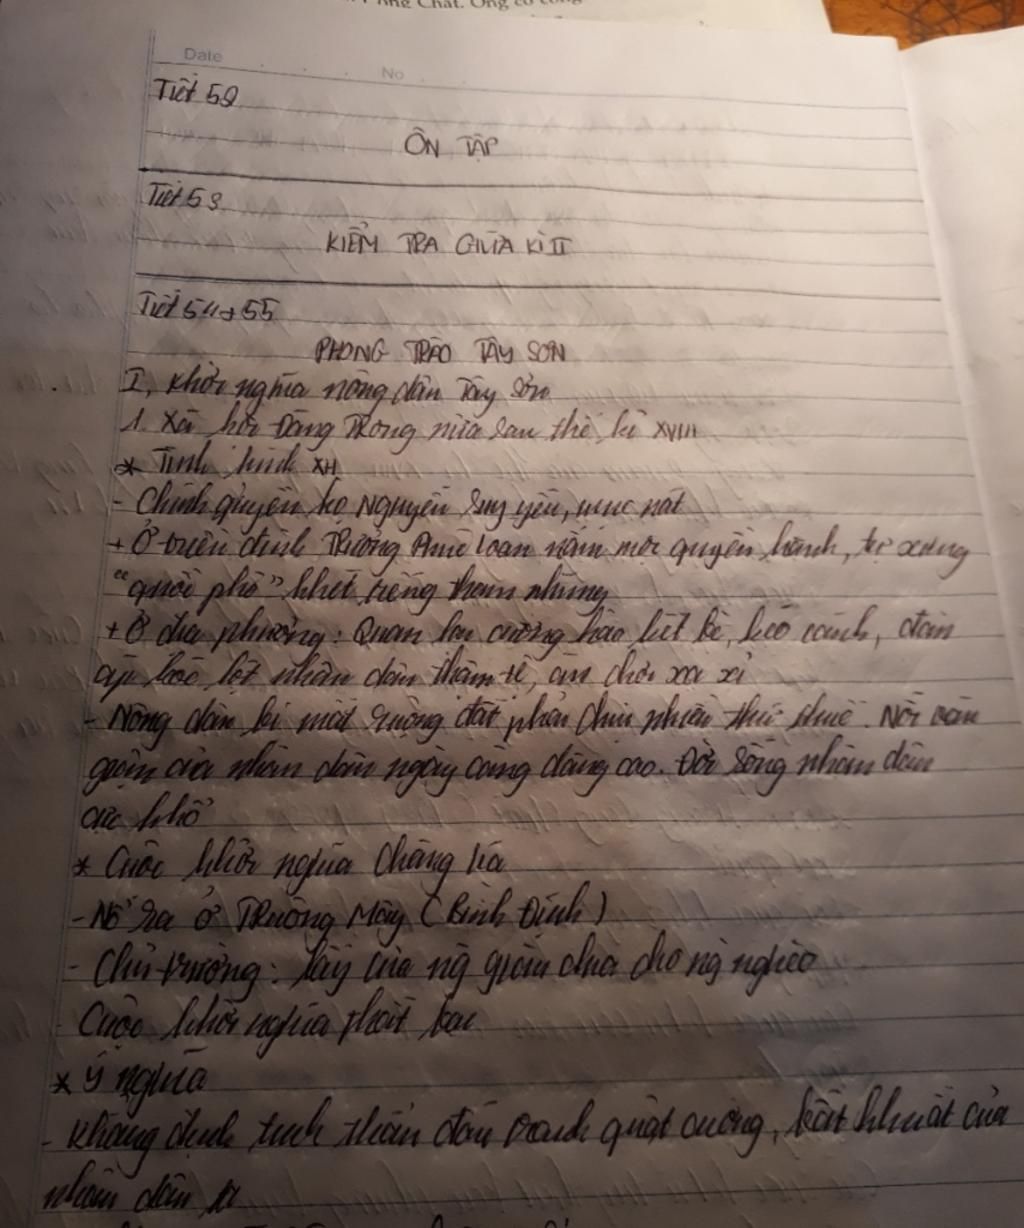 Date
No
Tiết 52
ÔN TẬP
Tiết 53
KIỂM TRA GIỮA KÌ II
Tiết 54+55
PHONG TRÀO TÂY SƠN
I, Khởi nghĩa nông dân Tây Sơn
1. Xã hội Đàng Trong nửa sau thế kỉ XVIII
* Tình hình XH
- Chính quyền họ Nguyễn suy yếu, mục nát
+ Ở triều đình Trương Phúc Loan nắm mọi quyền hành, tự xưng
"quốc phó" khét tiếng tham nhũng
+ Ở địa phương: Quan lại cường hào kết bè, kéo cánh, đàn
áp bóc lột nhân dân thậm tệ, ăn chơi xa xỉ
- Nông dân bị mất ruộng đất phải chịu nhiều thứ thuế. Nỗi oán
giận của nhân dân ngày càng dâng cao. Đời sống nhân dân
cực khổ
* Cuộc khởi nghĩa chàng Lía
- Nổ ra ở Truông Mây (Bình Định)
- Chủ trương: lấy của ng giàu chia cho ng nghèo
- Cuộc khởi nghĩa thất bại
* Ý nghĩa
- Khẳng định tinh thần đấu tranh quật cường, bất khuất của
nhân dân ta